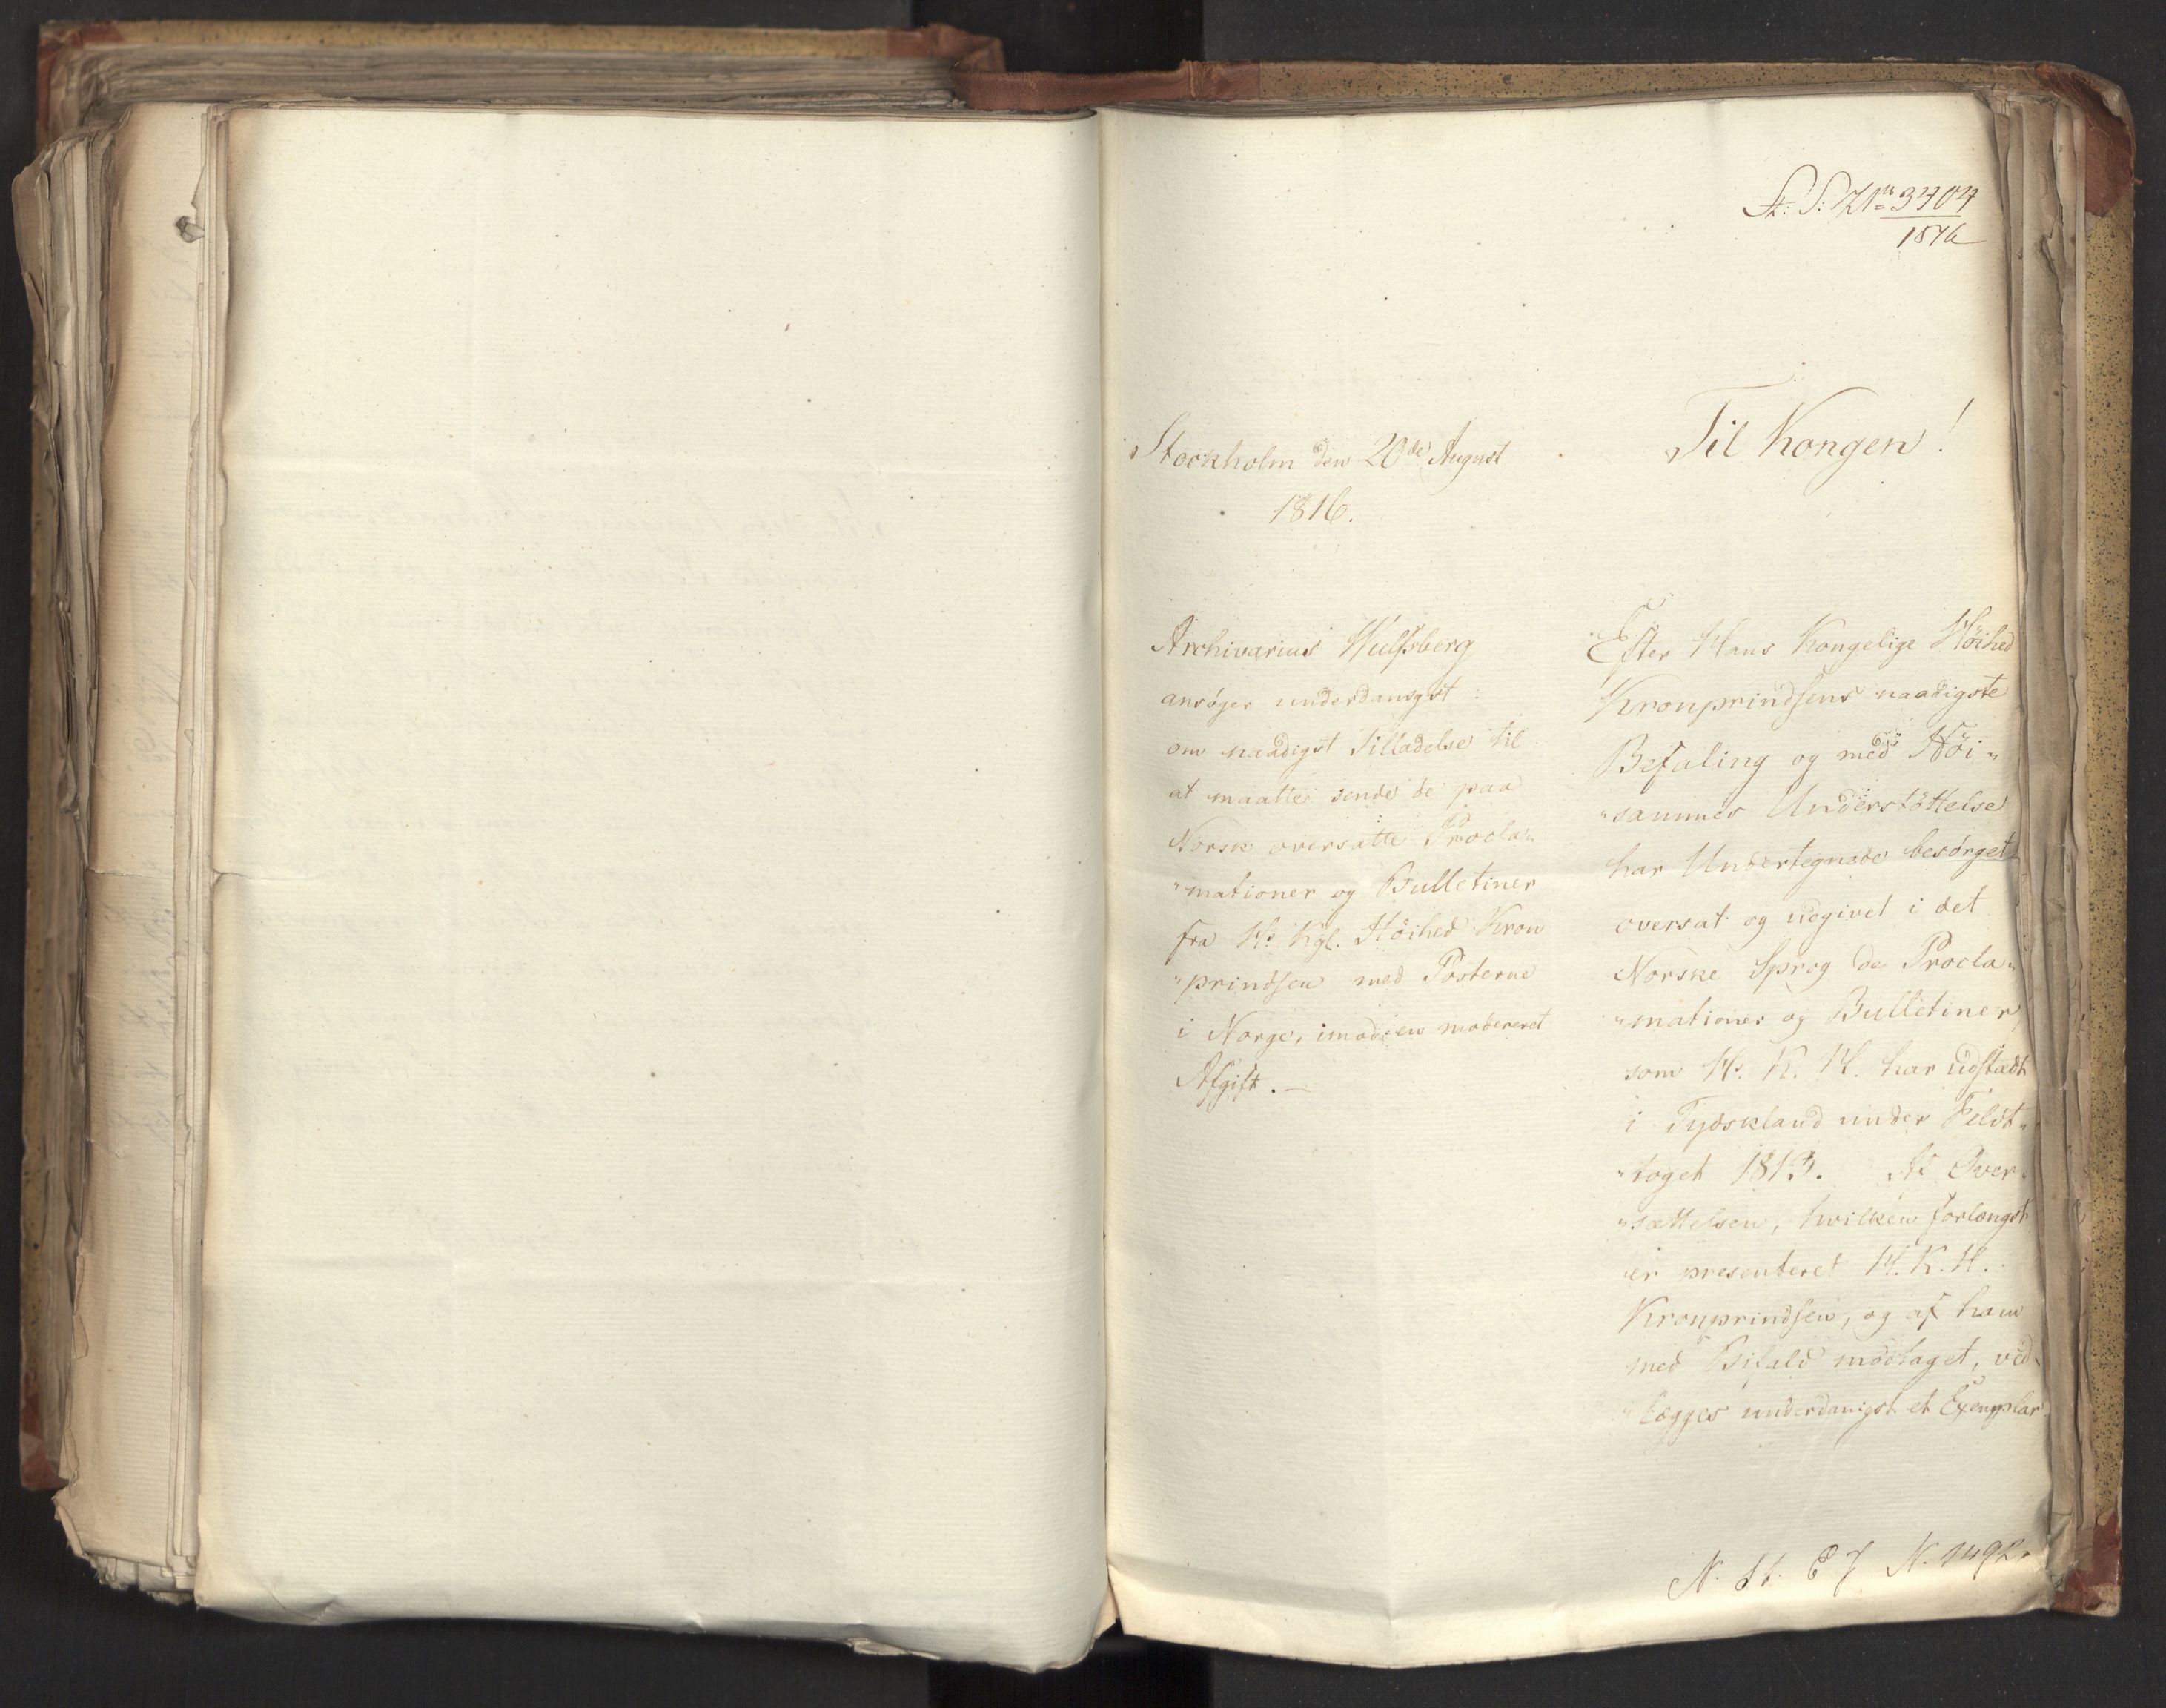 St. S. No 3404
1816
Stockholm den 20de August
1816.
Til Kongen!
Archivarius Wulfsberg
ansøger underdanigst:
om naadigst Tilladelse til
at maatte sende de paa
Norsk oversatte Procla„
„mationer og Bulletiner
fra Hs. Kgl. Höihed Kron
„prindsen med Posterne
i Norge, imod en modereret
Afgift. —
Efter Hans Kongelige Höihed
Kronprindsens naadigste
Befaling og med Höi„
„sammes Understöttelse
har Undertegnede besörget
oversat og udgivet i det
Norske Sprog de Procla„
„mationer og Bulletiner,
som Hs. K. H. har udstædt
i Tydskland under Feldt„
„toget 1813. Af Over„
„sættelsen, hvilken forlængst
er presenteret H. K. H.
Kronprindsen, og af ham
med Bifald modtaget, ved„
„lægges underdanigst et Exemplar
N. St. E J N. 1492.